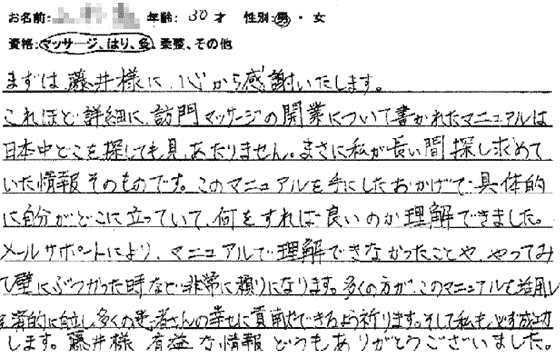 お名前: 年齢: 30才 性別: 男・女
資格: マッサージ、はり、灸、柔整、その他
まずは、藤井様に、心から感謝いたします。
これほど詳細に、訪問マッサージの開業について書かれたマニュアルは
日本中どこを探しても見あたりません。まさに私が長い間探し求めて
いた情報そのものです。このマニュアルを手にしたおかげで、具体的
に自分がどこに立っていて、何をすれば良いのか理解できました。
メールサポートにより、マニュアルで理解できなかったことや、やってみ
て壁にぶつかった時など非常に頼りになります。多くの方が、このマニュアルを活用し
的に自立し、多くの患者さんの幸せに貢献できるよう祈ります。そして私も必ず成功
します。藤井様 有益な情報どうもありがとうございました。